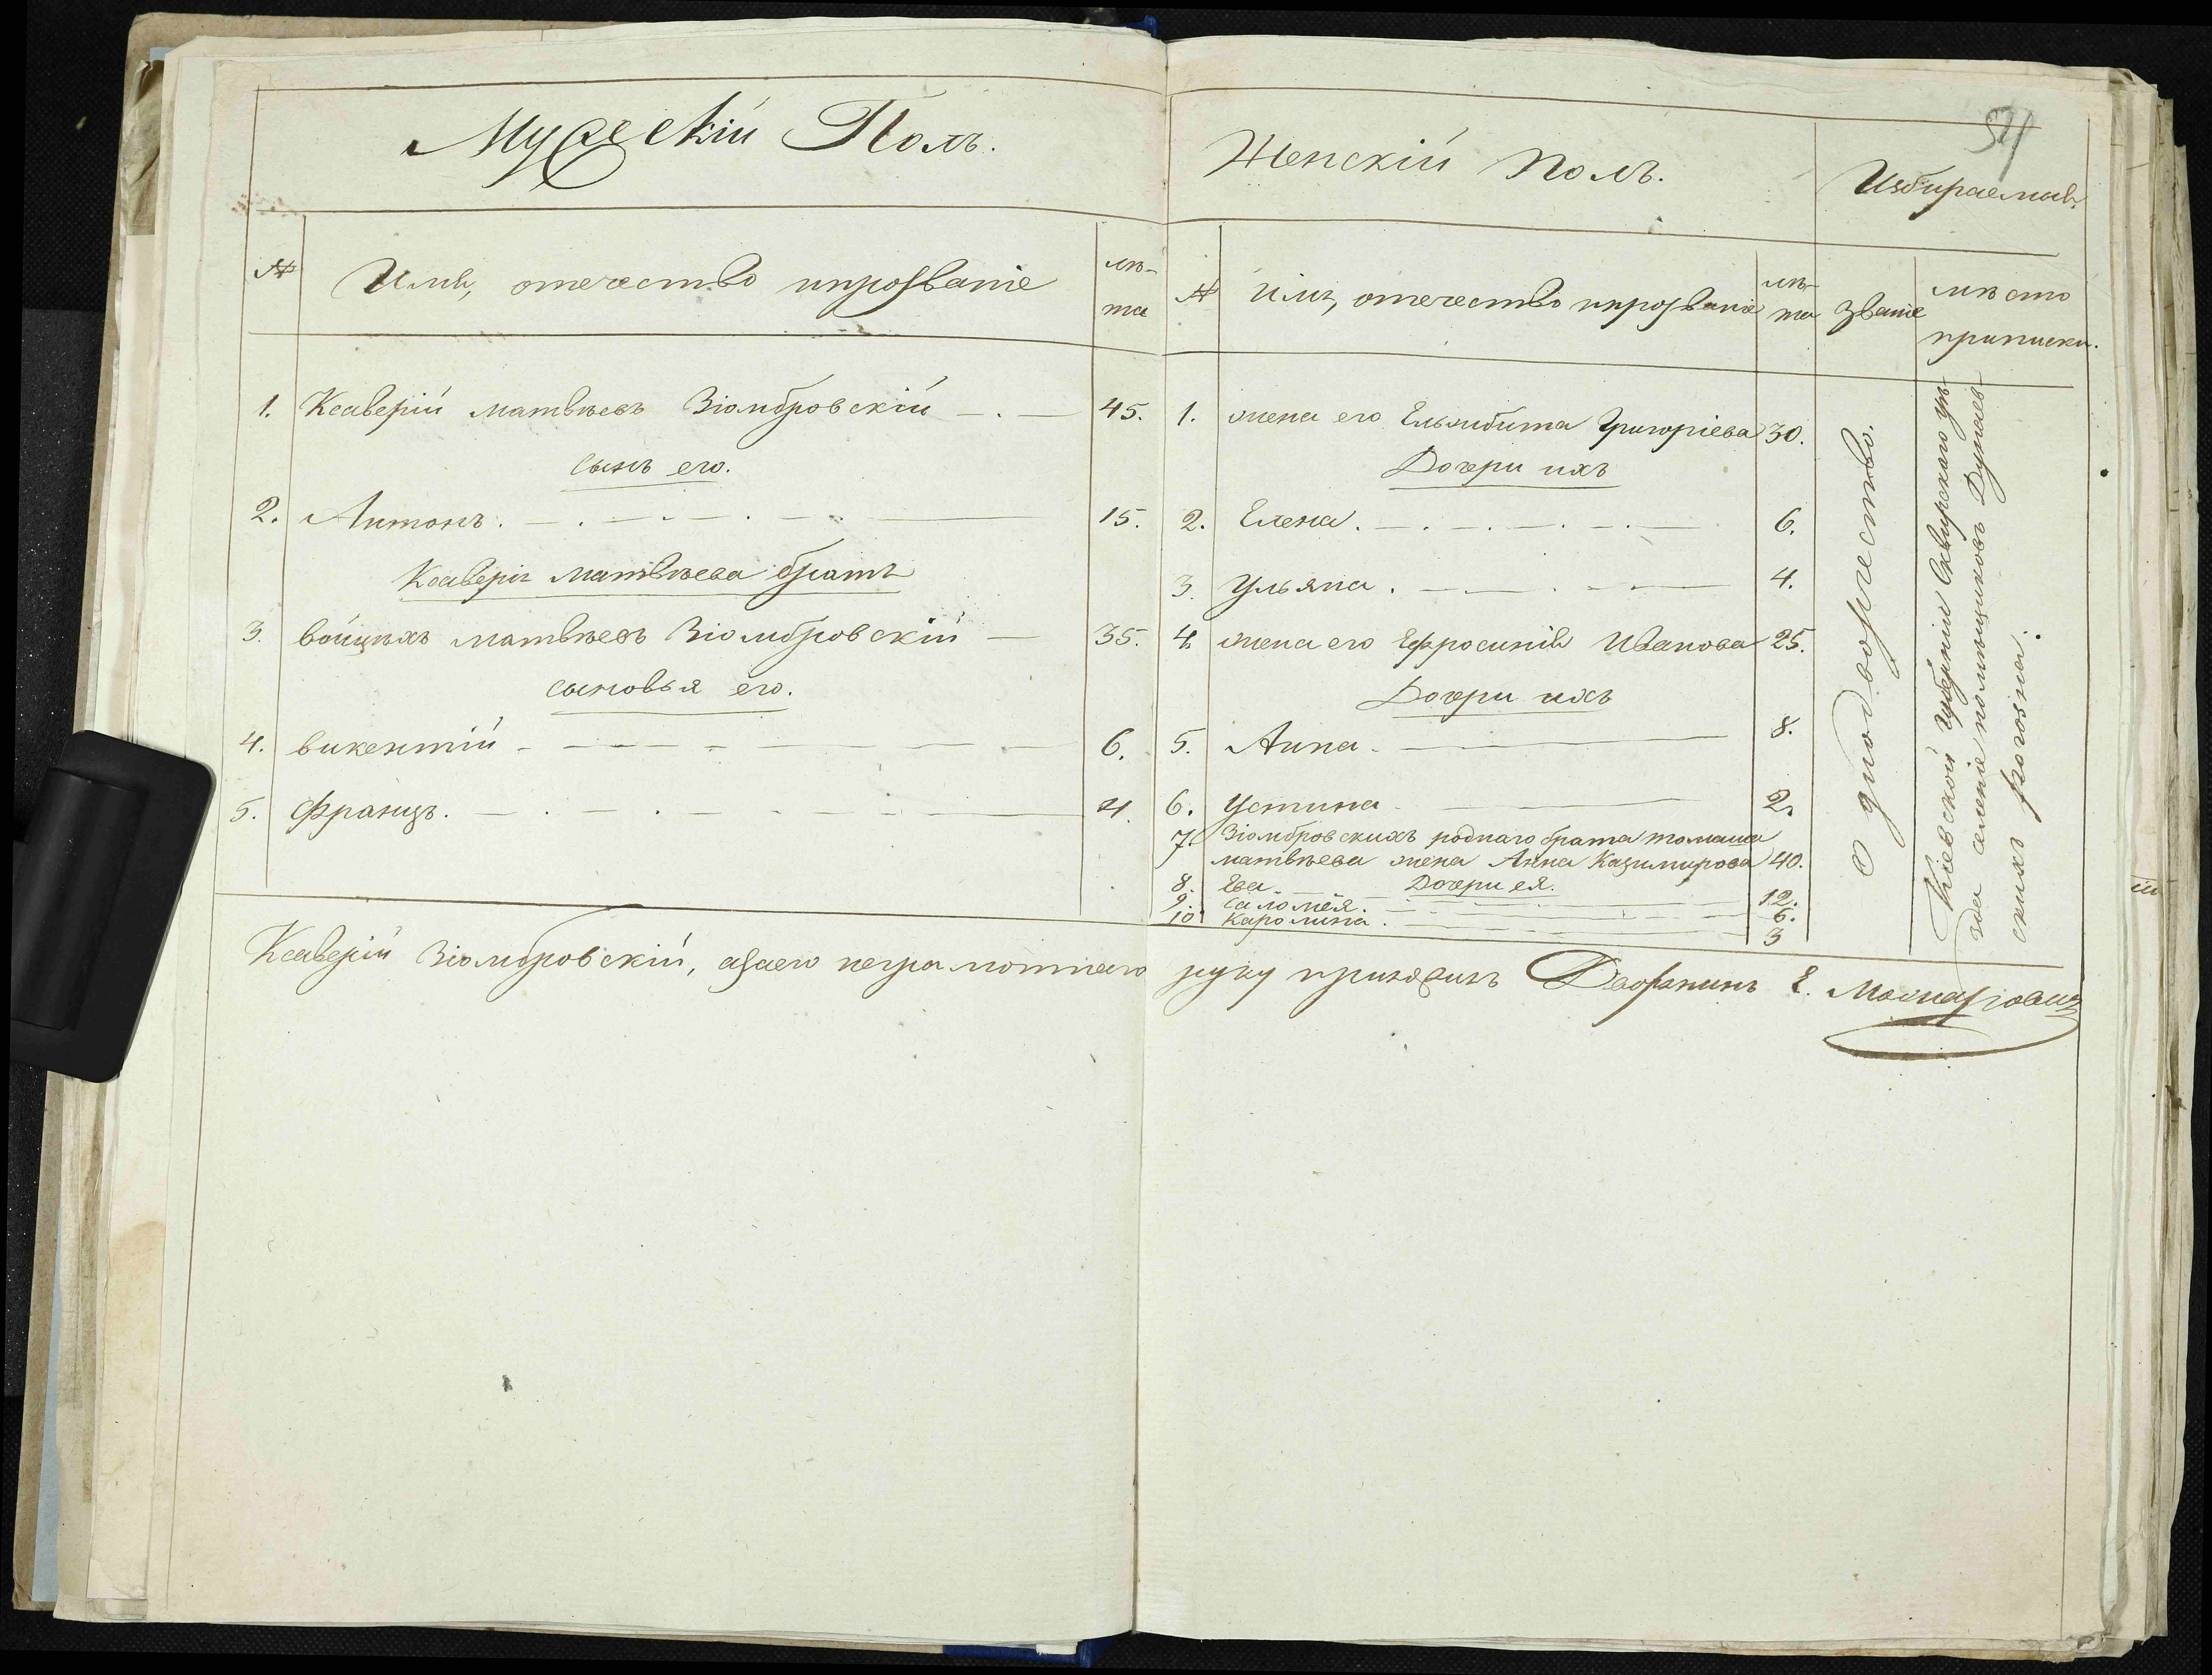 Мужескій Полъ.
№ Имя, отечество и прозваніе лѣ-
та
1. Ксаверій Матвѣевъ Зіомбровскій 45.
сынъ его.
2. Антонъ. 15.
Ксаверія Матвѣева братъ
3. Войцѣхъ Матвѣевъ Зіомбровскій 35.
сыновья его.
4. Викентій 6.
5. Францъ. 4.
Женскій Полъ.
Избираемыя.
№ Имя, отечество и прозваніе лѣ-
та
званіе
мѣсто
приписки.
1. жена его Ельжбита Григоріева 30.
Дочери ихъ
2. Елена. 6.
3. Ульяна. 4.
4. жена его Ефросинія Иванова 25.
Дочери ихъ
5. Анна. 8.
6. Устина 2.
7. Зіомбровскихъ роднаго брата Томаша
Матвѣева жена Анна Казимирова 40.
Дочери ея.
8. Ева. 12.
9. Саломея. 6.
10. Каролина. 3
Однодворчество.
Кіевской Губерніи Сквирскаго уѣ-
зда селеніе помѣщиковъ
Ксаверій Зіомбровскій, а за его неграмотнаго руку приложилъ Дворянинъ Е.